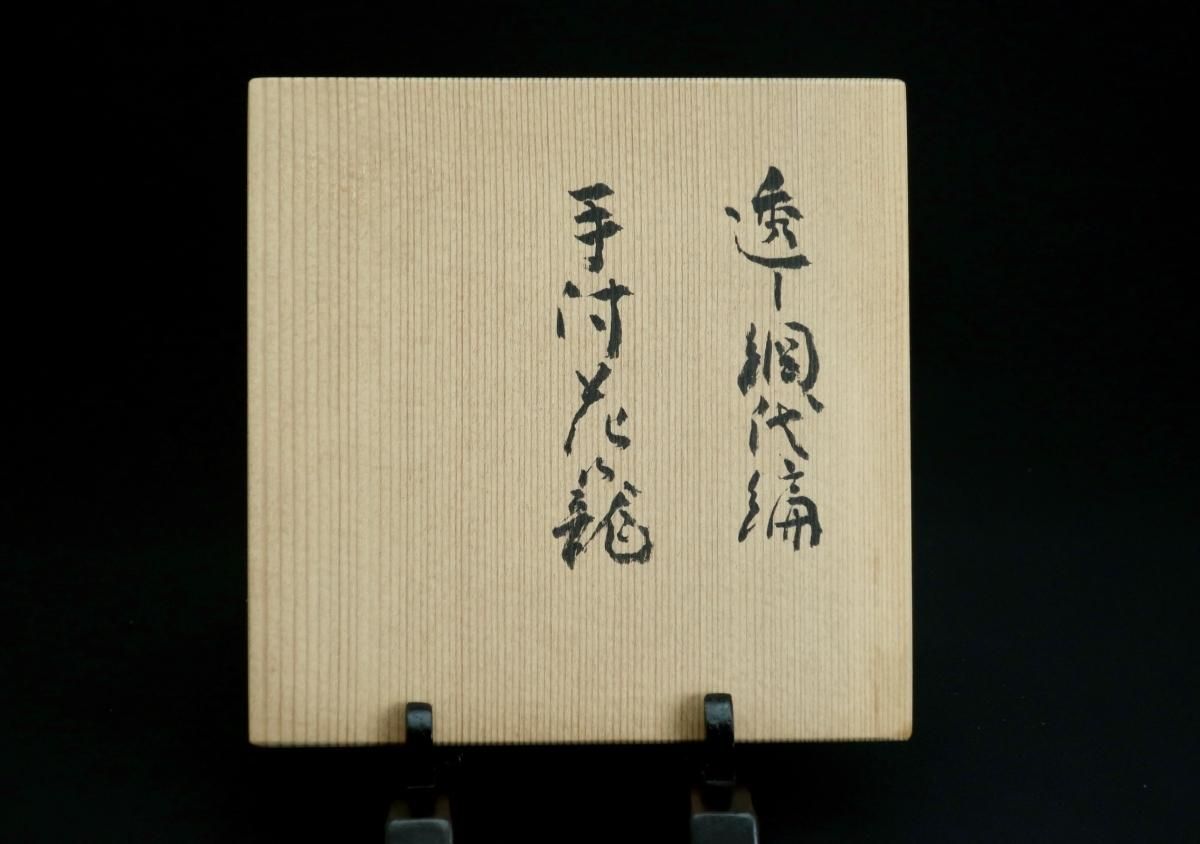 透し網代編
手付花籠